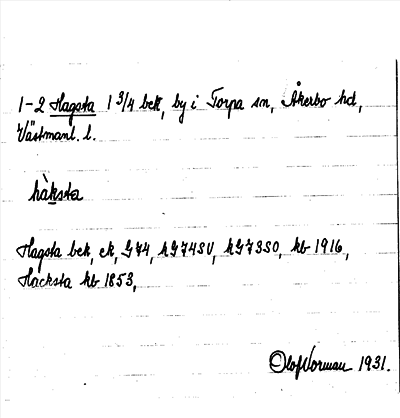 1-2 Hagsta 1 3/4 bek, by i Torpa sn, Åkerbo hd,
Västmanl. l.
hàksta
Hagsta bek, ek, G74, kG74SV, kG73SO, kb 1916,
Hacksta kb 1853,
Olof Norman 1931.